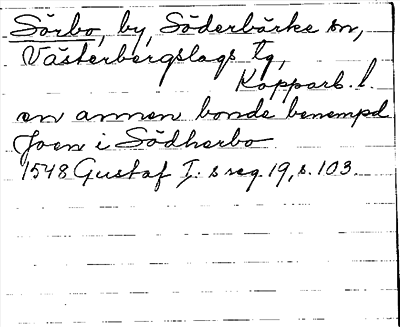 Sörbo, by, Söderbärke sn,
Västerbergslags tg,
Kopparb. l.
en annen bonde benempd
Joen i Södherbo
1548 Gustaf I:s reg. 19, s. 103